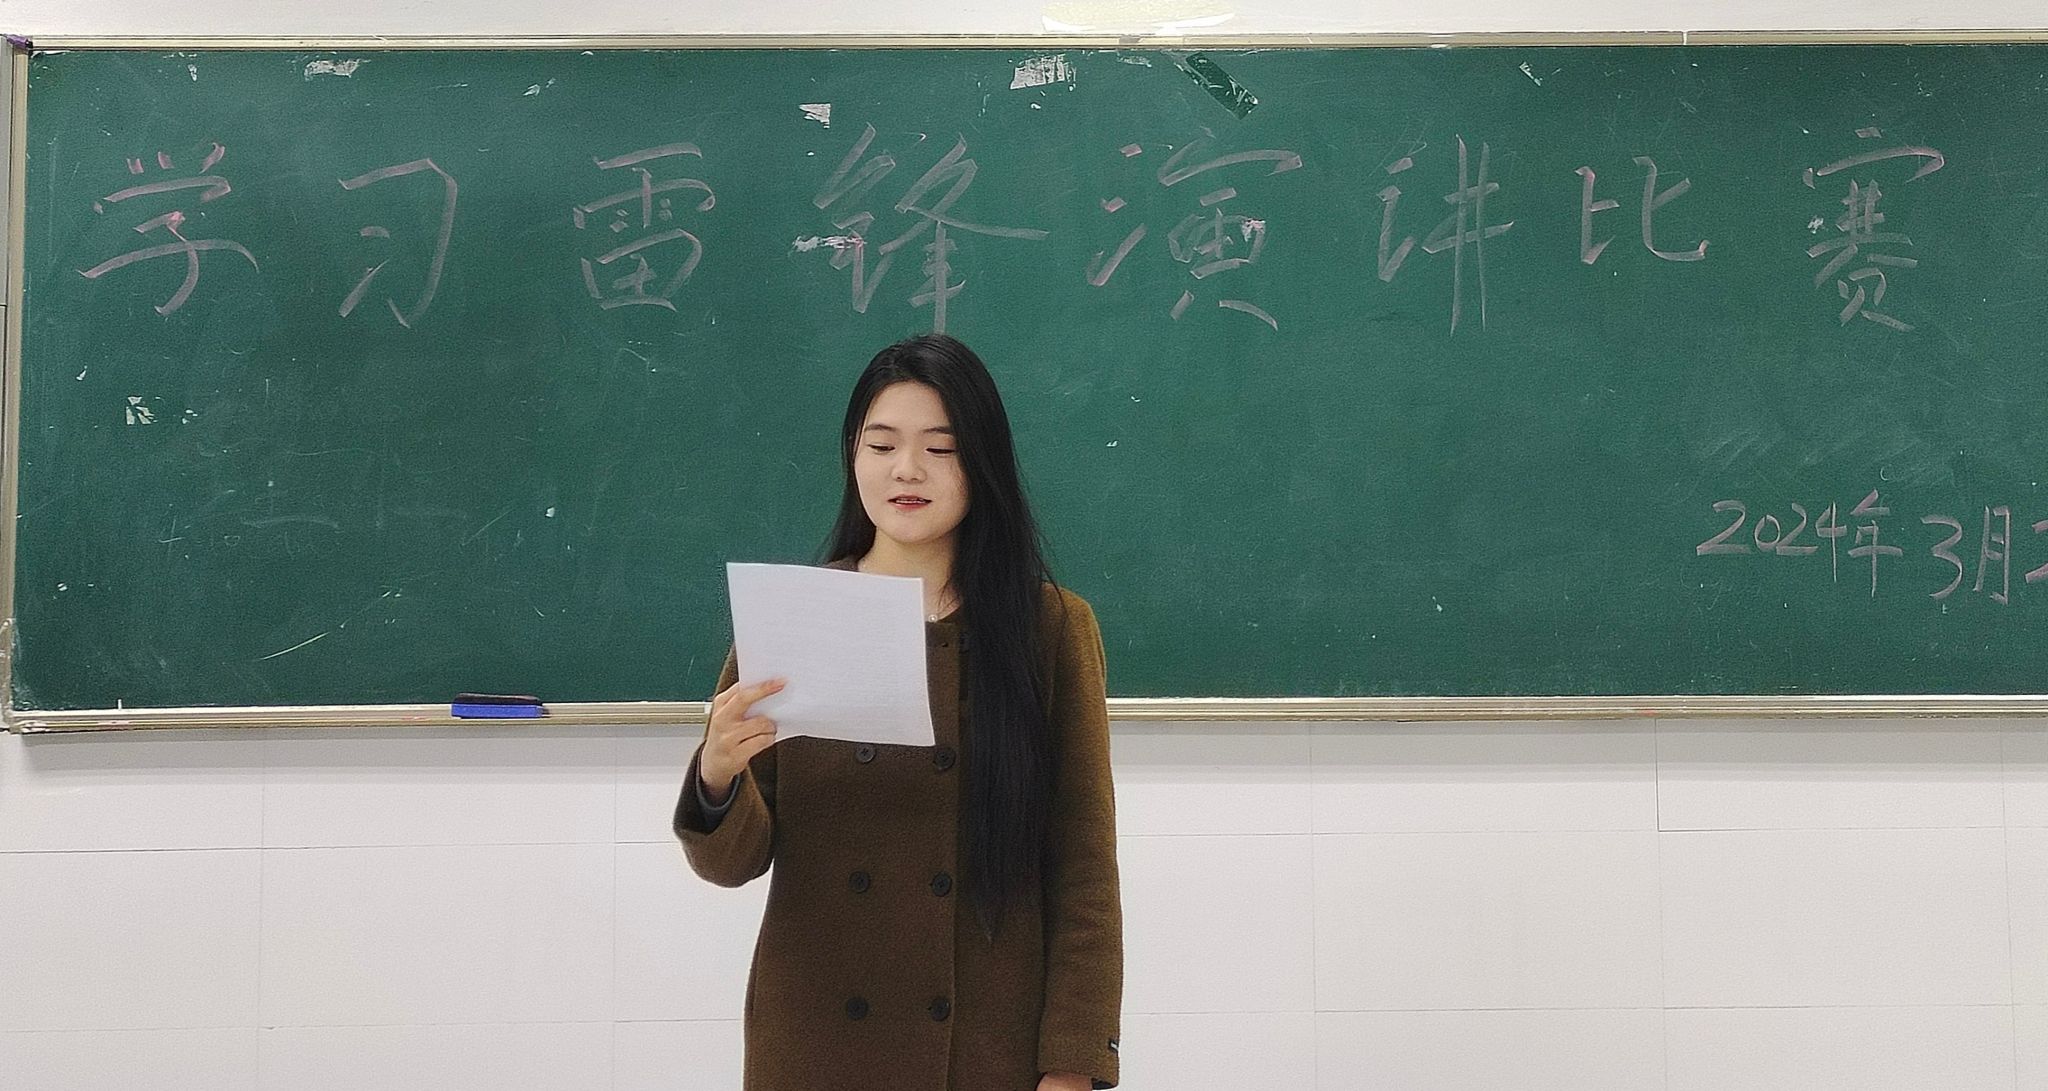 学习雷锋演讲比赛
2024年3月2